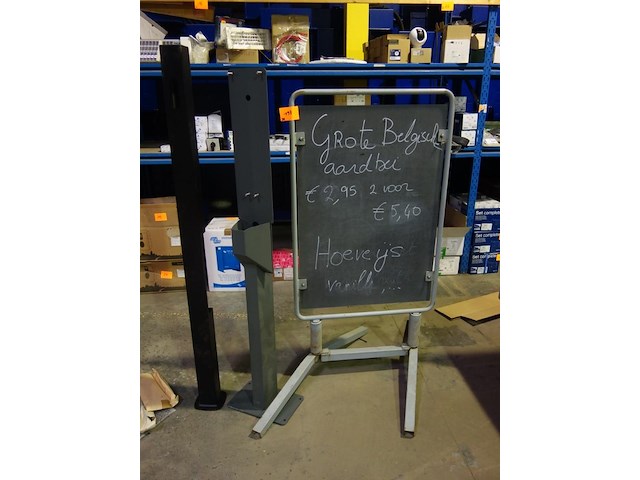 GRote Belgisch
aardbei
€ 2,95 2 voor
€ 5,40
Hoeveijs
vanille,...
Set comple
Set comple